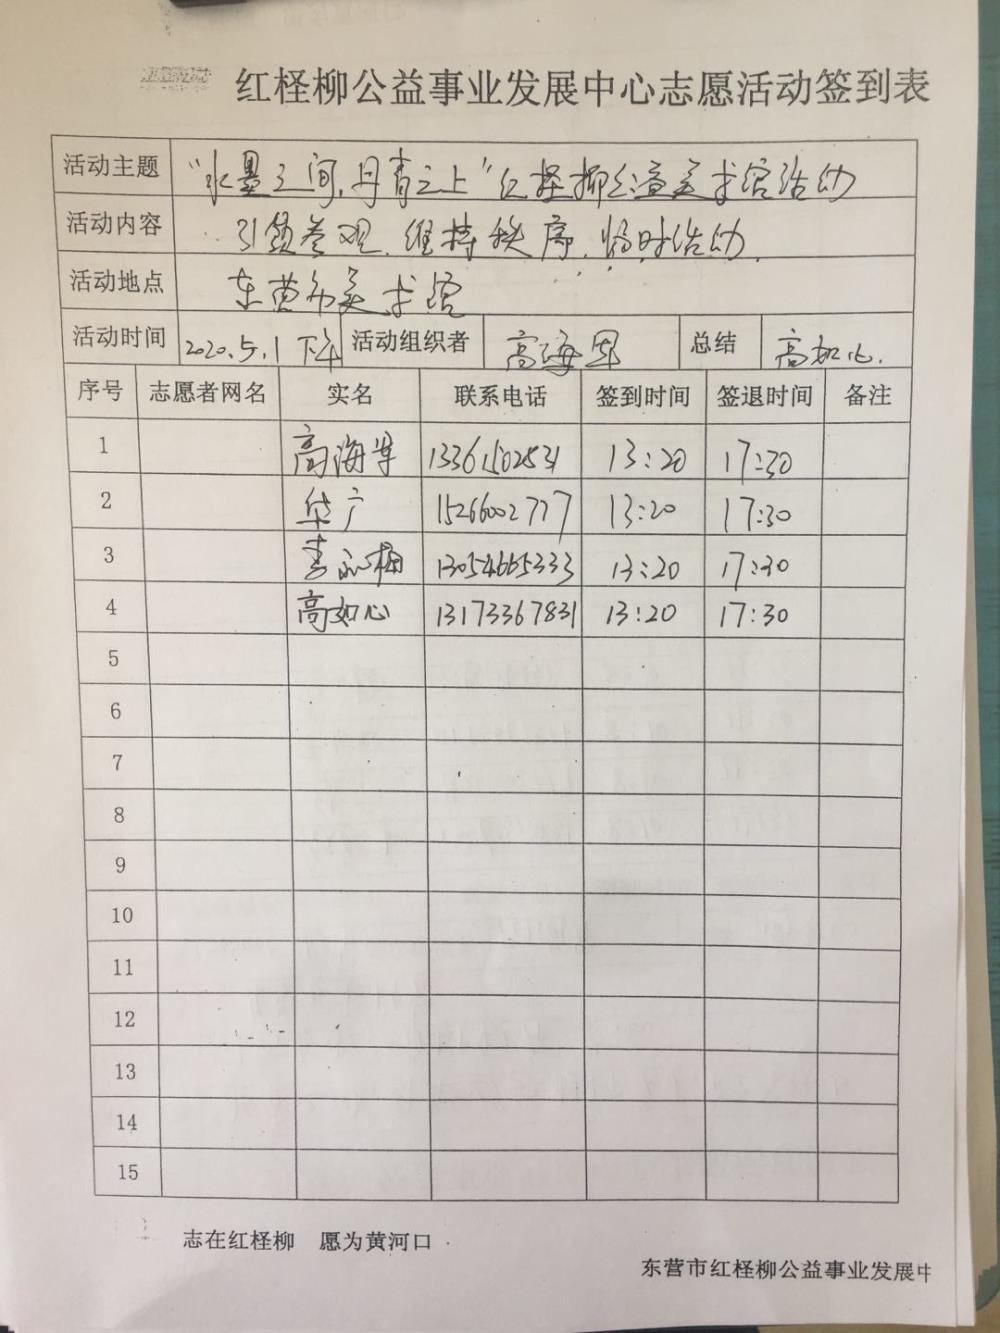 红柽柳公益事业发展中心志愿活动签到表
活动主题 “水墨之间,丹青之上”红柽柳公益美术馆活动
活动内容 引领参观、维持秩序、临时活动.
活动地点 东营市美术馆
活动时间 2020.5.1下午 活动组织者 高海军 总结 高如心.
序号 志愿者网名 实名 联系电话 签到时间 签退时间 备注
1 高海军 13361502831 13:20 17:30
2 华广 15266002777 13:20 17:30
3 李永梅 13054665333 13:20 17:30
4 高如心 13173367831 13:20 17:30
5
6
7
8
9
10
11
12
13
14
15
志在红柽柳 愿为黄河口
东营市红柽柳公益事业发展中